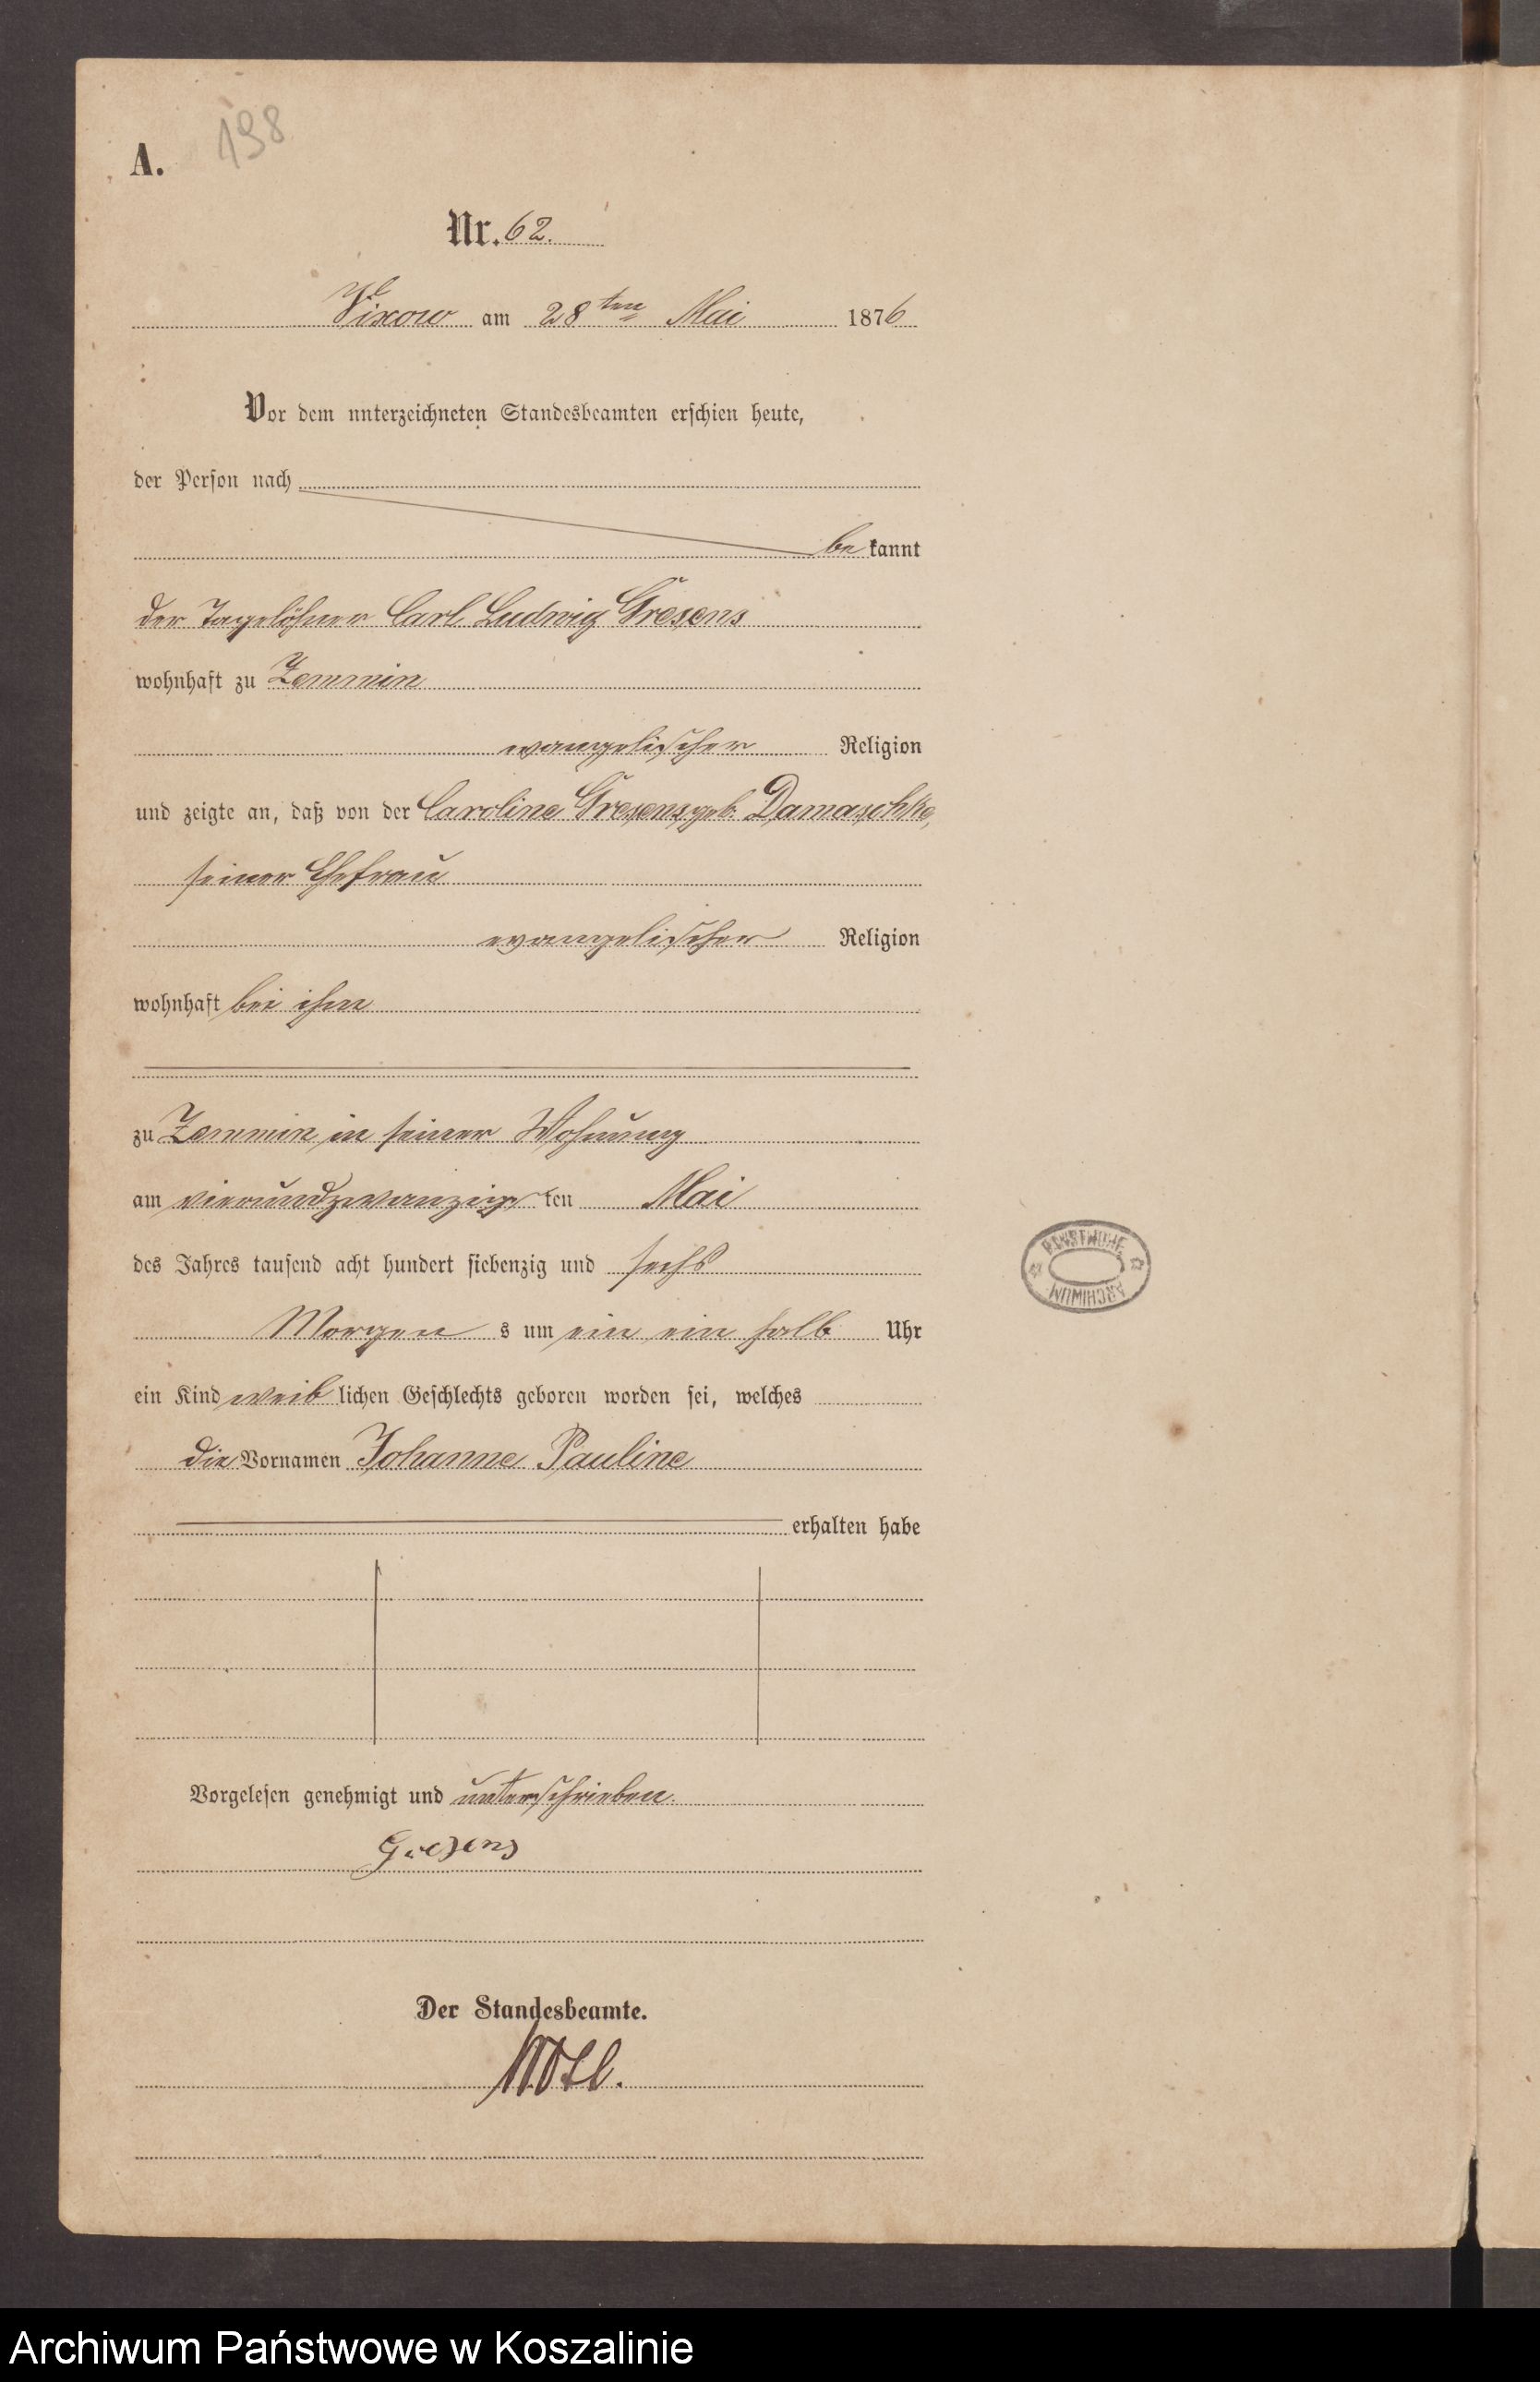 A.
198
Nr. 62.
Vixow am 28ten Mai 1876
Vor dem unterzeichneten Standesbeamten erschien heute,
der Person nach
bekannt
der Tagelöhner Carl Ludwig Gresens
wohnhaft zu Zemmin
evangelischer Religion
und zeigte an, daß von der Caroline Gresens geb. Damaschke,
seiner Ehefrau
evangelischer Religion
wohnhaft bei ihm
zu Zemmin in seiner Wohnung
am vierundzwanzigsten Mai
des Jahres tausend acht hundert siebenzig und sechs
Morgens um ein ein halb Uhr
ein Kind weiblichen Geschlechts geboren worden sei, welches
die Vornamen Johanne Pauline
erhalten habe
Vorgelesen genehmigt und unterschrieben.
Gresens
Der Standesbeamte.
ARCHIWUM
Archiwum Państwowe w Koszalinie